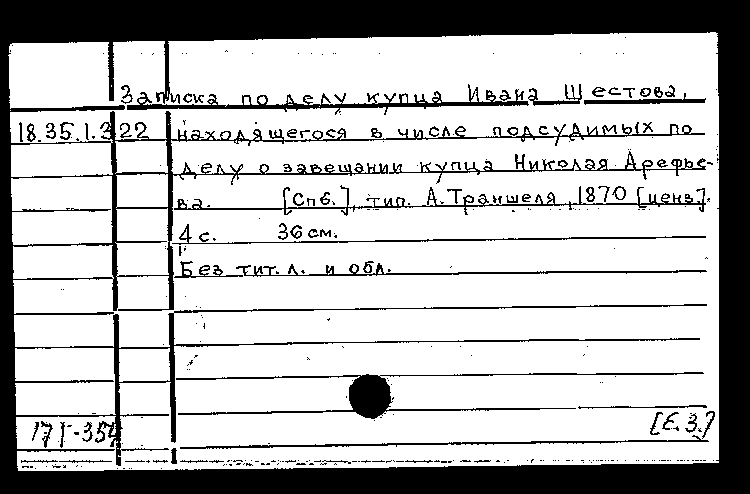 Записка по делу купца Ивана Шестова,
18.35.1.322 находящегося в числе подсудимых по
делу о завещании купца Николая Арефье-
ва. [Спб.], тип. А. Траншеля, 1870 [ценз].
4 с. 36 см.
Без тит. л. и обл.
[Е.З.]